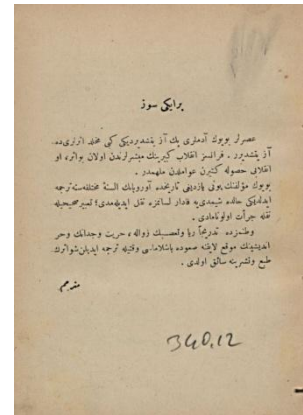 برایکی سوز
عصرلر بویوك آدملری پك آز یتشدیردیکی کبی مخلد اثرلری ده
آز یتشدیرر . فرانسز انقلاب کبیرینك مبشرلرندن اولان بو اثر ، او
انقلابی حصوله کتیرن عواملدن ملهمدر .
بویوك مؤلفنك بونی یازدیغی تاریخدن آوروپانك السنهٔ مختلفه‌سنه ترجمه
ایدلدیکی حالده شیمدی‌یه قادار لسانمزه نقل ایدیله‌مدی ؛ تعبیر صحیحیله
نقله جرأت اولونامادی .
وطنمزده تدریجاً ریا وتعصبك زواله ، حریت وجدانك وحر
اندیشینك موقع لایقنه صعوده باشلاماسی وقتیله ترجمه ایدیلن شو اثرك
طبع ونشرینه سائق اولدی .
مترجم
340.12